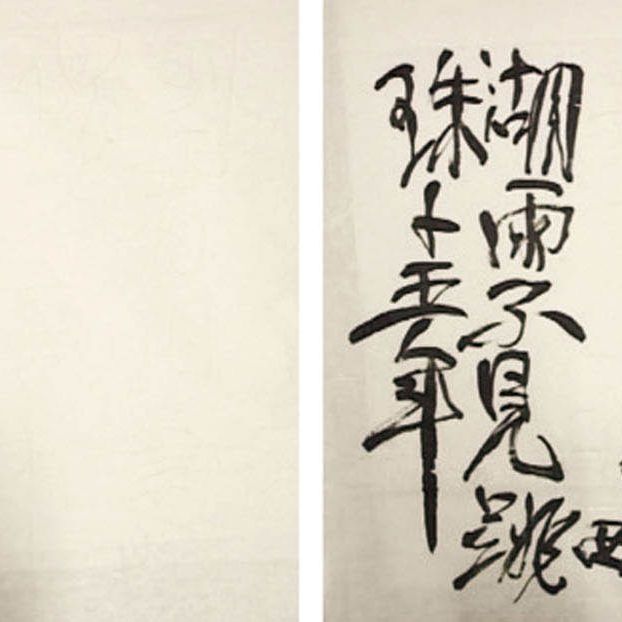 西
湖雨不見跳
珠十五年